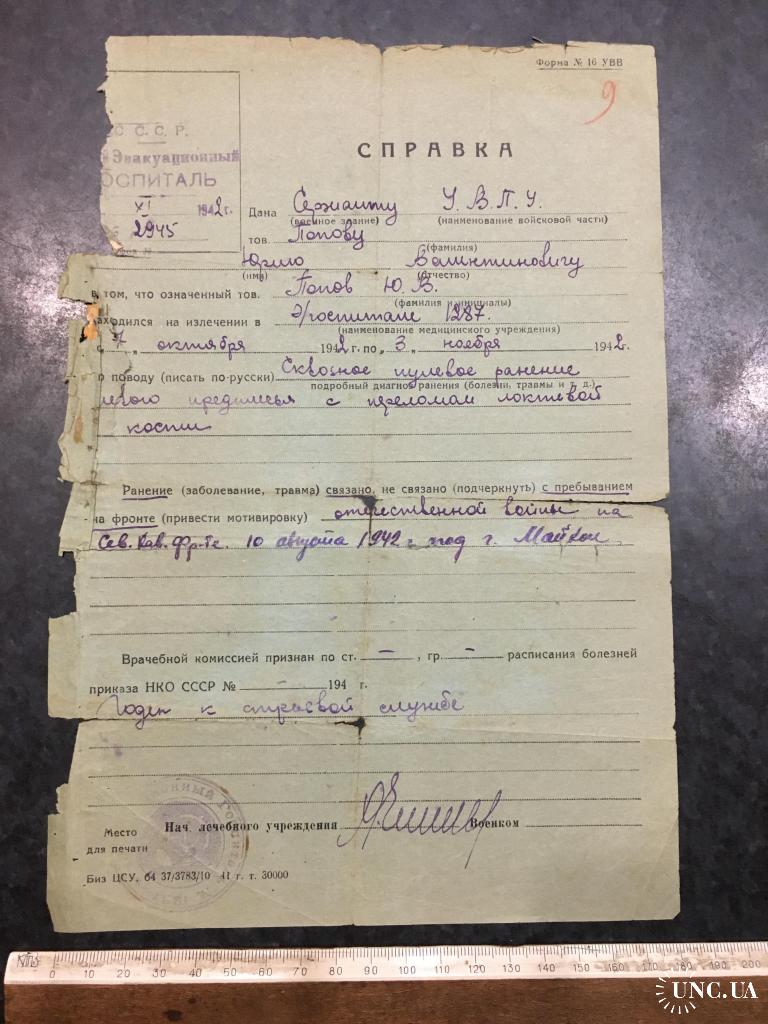 Форма № 16 УВВ
9
С С. Р.
Эвакуационный
ОСПИТАЛЬ
XI 1942 г.
2945
СПРАВКА
Дана Сержанту У. В. П. У.
(военное звание) (наименование войсковой части)
тов. Попову
(фамилия)
Юрию Валентиновичу
(имя) (отчество)
в том, что означенный тов. Попов Ю. В.
(фамилия и инициалы)
находился на излечении в Э/госпитале 1287.
(наименование медицинского учреждения)
с „7„ октября 1942 г. по „3„ ноября 1942 г.
о поводу (писать по-русски) Сквозное пулевое ранение
подробный диагноз ранения (болезни, травмы и т. д.)
левого предплечья с переломом локтевой
кости
Ранение (заболевание, травма) связано, не связано (подчеркнуть) с пребыванием
на фронте (привести мотивировку) отечественной войны на
Сев. Кав. Фр-те. 10 августа 1942 г. под г. Майкоп
Врачебной комиссией признан по ст. – , гр. – расписания болезней
приказа НКО СССР № – 194 г.
Годен к строевой службе
Нач. лечебного учреждения Военком
Место
для печати
Биз ЦСУ, 64 37/3783/10 41 г. т. 30000
0 10 20 30 40 50 60 70 80 90 100 110 120 130 140 150 160 170 180 190 200
UNC.UA